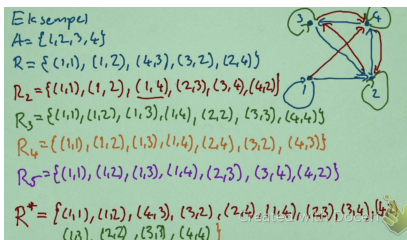 Eksempel
A={1,2,3,4}
R={(1,1),(1,2),(4,3),(3,2),(2,4)}
R2={(1,1),(1,2),(1,4),(2,3),(3,4),(4,2)}
R3={(1,1),(1,2),(1,3),(1,4),(2,2),(3,3),(4,4)}
R4={(1,1),(1,2),(1,3),(1,4),(2,4),(3,2),(4,3)}
R5={(1,1),(1,2),(1,3),(1,4),(2,3),(3,4),(4,2)}
R*={(1,1),(1,2),(4,3),(3,2),(2,4),(1,4),(2,3),(3,4),(4,2)
(1,3),(2,2),(3,3),(4,4)}
3
4
1
2